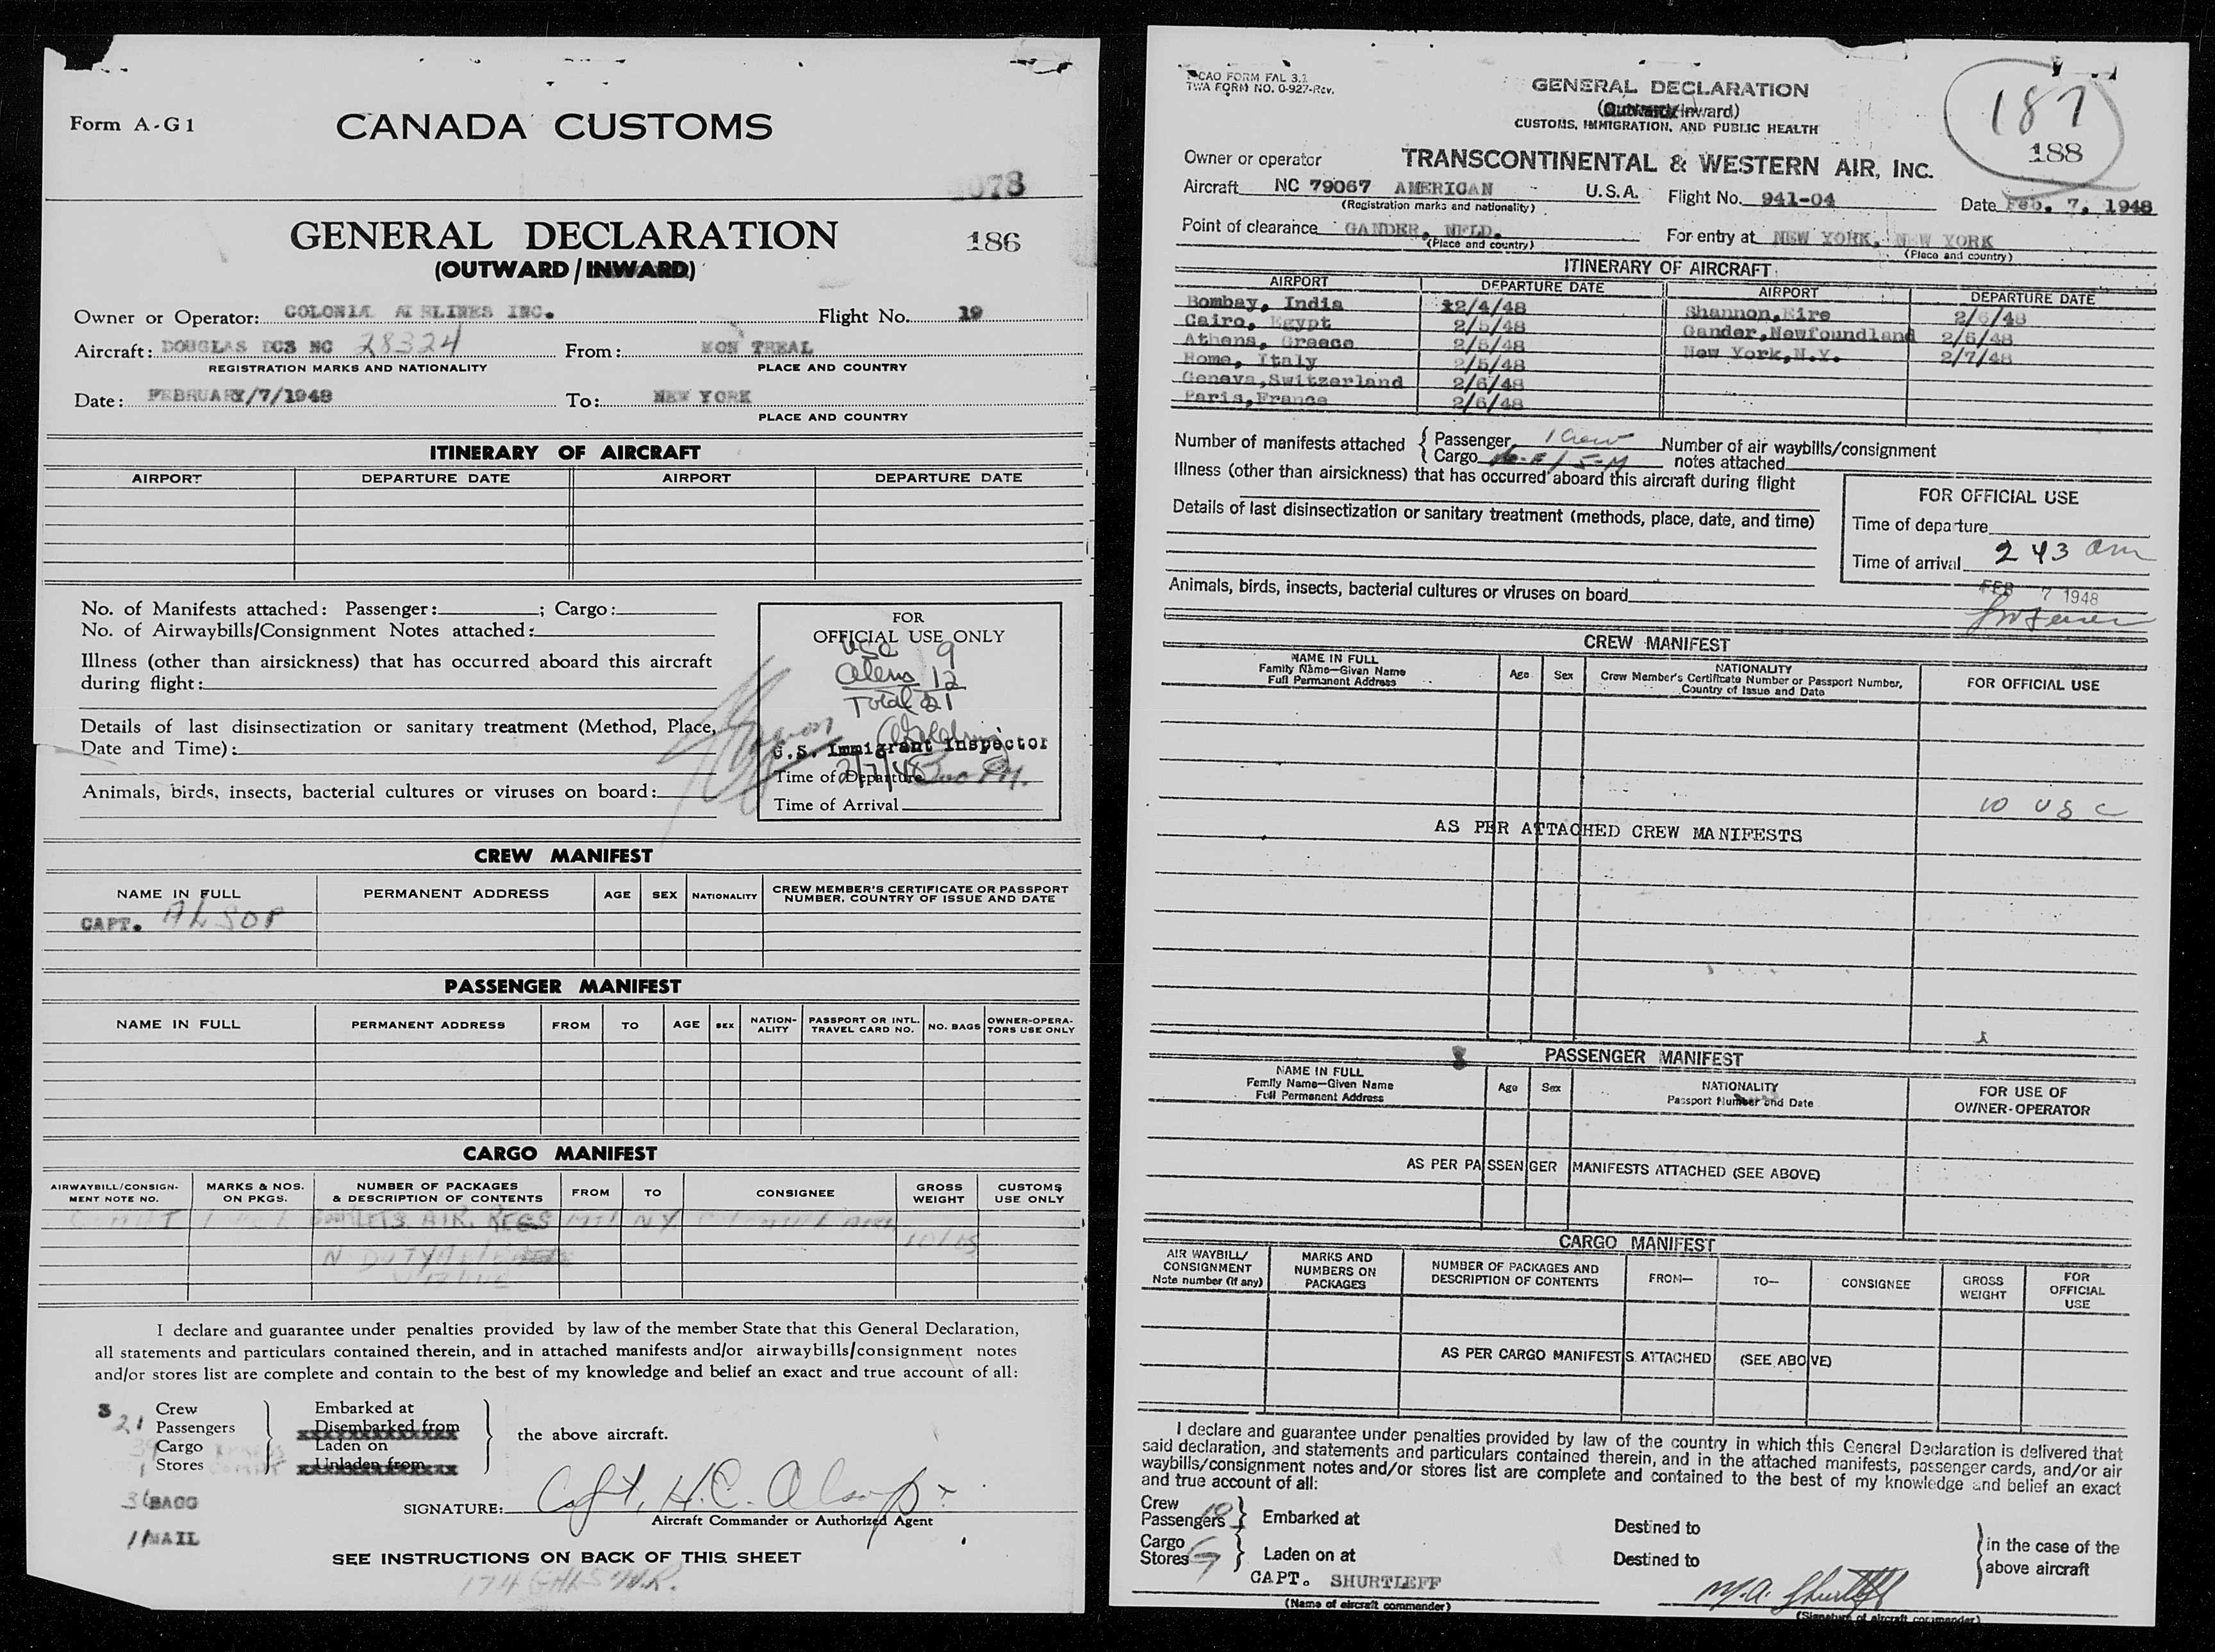 Form A-G1
CANADA CUSTOMS
078
GENERAL DECLARATION
186
(OUTWARD/INWARD)
Owner or Operator: COLONIAL AIRLINES INC. Flight No. 19
Aircraft: DOUGLAS DC3 NC 28324 From: MON TREAL
REGISTRATION MARKS AND NATIONALITY PLACE AND COUNTRY
Date: FEBRUARY/7/1948 To: NEW YORK
PLACE AND COUNTRY
ITINERARY OF AIRCRAFT
AIRPORT DEPARTURE DATE AIRPORT DEPARTURE DATE
No. of Manifests attached: Passenger: ; Cargo:
No. of Airwaybills/Consignment Notes attached:
Illness (other than airsickness) that has occurred aboard this aircraft
during flight:
Details of last disinsectization or sanitary treatment (Method, Place,
Date and Time):
Animals, birds, insects, bacterial cultures or viruses on board:
FOR
OFFICIAL USE ONLY
USC 9
Aliens 12
Total 21
U.S. Immigrant Inspector
2/7/48
Time of Departure PM.
Time of Arrival
CREW MANIFEST
NAME IN FULL PERMANENT ADDRESS AGE SEX NATIONALITY CREW MEMBER'S CERTIFICATE OR PASSPORT
NUMBER, COUNTRY OF ISSUE AND DATE
CAPT. ALSOP
PASSENGER MANIFEST
NAME IN FULL PERMANENT ADDRESS FROM TO AGE SEX NATION-
ALITY PASSPORT OR INTL.
TRAVEL CARD NO. NO. BAGS OWNER-OPERA-
TORS USE ONLY
CARGO MANIFEST
AIRWAYBILL/CONSIGN-
MENT NOTE NO. MARKS & NOS.
ON PKGS. NUMBER OF PACKAGES
& DESCRIPTION OF CONTENTS FROM TO CONSIGNEE GROSS
WEIGHT CUSTOMS
USE ONLY
AIR. REGS MTL NY
N DUTY
I declare and guarantee under penalties provided by law of the member State that this General Declaration,
all statements and particulars contained therein, and in attached manifests and/or airwaybills/consignment notes
and/or stores list are complete and contain to the best of my knowledge and belief an exact and true account of all:
3 Crew Embarked at
21 Passengers Disembarked from
Cargo Laden on the above aircraft.
Stores Unladen from
BAGG
MAIL
SIGNATURE: Capt. H.C. Alsop
Aircraft Commander or Authorized Agent
SEE INSTRUCTIONS ON BACK OF THIS SHEET
ICAO FORM FAL 3.1
TWA FORM NO. 0-927-Rev.
GENERAL DECLARATION
(Outward/Inward)
CUSTOMS, IMMIGRATION, AND PUBLIC HEALTH
187
188
Owner or operator TRANSCONTINENTAL & WESTERN AIR, INC.
Aircraft NC 79067 AMERICAN U.S.A. Flight No. 941-04 Date Feb. 7, 1948
(Registration marks and nationality)
Point of clearance GANDER, NFLD. For entry at NEW YORK, NEW YORK
(Place and country) (Place and country)
ITINERARY OF AIRCRAFT
AIRPORT DEPARTURE DATE AIRPORT DEPARTURE DATE
Bombay, India 2/4/48 Shannon, Eire 2/6/48
Cairo, Egypt 2/5/48 Gander, Newfoundland 2/6/48
Athens, Greece 2/5/48 New York, N.Y. 2/7/48
Rome, Italy 2/5/48
Geneva, Switzerland 2/6/48
Paris, France 2/6/48
Number of manifests attached { Passenger 1 Crew Number of air waybills/consignment
Cargo 5-M notes attached
Illness (other than airsickness) that has occurred aboard this aircraft during flight
Details of last disinsectization or sanitary treatment (methods, place, date, and time)
FOR OFFICIAL USE
Time of departure
Time of arrival 2 43 am
FEB 7 1948
Animals, birds, insects, bacterial cultures or viruses on board
CREW MANIFEST
NAME IN FULL
Family Name—Given Name
Full Permanent Address Age Sex NATIONALITY
Crew Member's Certificate Number or Passport Number,
Country of Issue and Date FOR OFFICIAL USE
10 USC
AS PER ATTACHED CREW MANIFESTS
PASSENGER MANIFEST
NAME IN FULL
Family Name—Given Name
Full Permanent Address Age Sex NATIONALITY
Passport Number and Date FOR USE OF
OWNER-OPERATOR
AS PER PASSENGER MANIFESTS ATTACHED (SEE ABOVE)
CARGO MANIFEST
AIR WAYBILL/
CONSIGNMENT
Note number (if any) MARKS AND
NUMBERS ON
PACKAGES NUMBER OF PACKAGES AND
DESCRIPTION OF CONTENTS FROM— TO— CONSIGNEE GROSS
WEIGHT FOR
OFFICIAL
USE
AS PER CARGO MANIFESTS ATTACHED (SEE ABOVE)
I declare and guarantee under penalties provided by law of the country in which this General Declaration is delivered that
said declaration, and statements and particulars contained therein, and in the attached manifests, passenger cards, and/or air
waybills/consignment notes and/or stores list are complete and contained to the best of my knowledge and belief an exact
and true account of all:
Crew 10
Passengers Embarked at Destined to
Cargo
Stores Laden on at Destined to
in the case of the
above aircraft
CAPT. SHURTLEFF M.A. Shurtleff
(Name of aircraft commander) (Signature of aircraft commander)